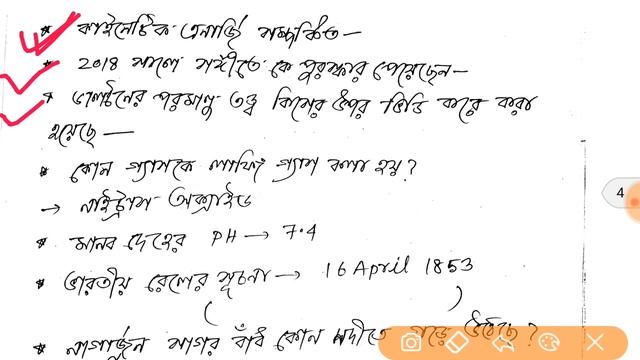 * কাইনেটিক এনার্জি সম্পর্কিত—
* 2018 সালে সঙ্গীতে কে পুরস্কার পেয়েছেন—
* ডালটনের পরমাণু তত্ত্ব কিসের উপর ভিত্তি করে করা
হয়েছে —
* কোন গ্যাসকে লাফিং গ্যাস বলা হয়?
→ নাইট্রাস অক্সাইড
* মানব দেহের PH → 7.4
* ভারতীয় রেলের সূচনা → 16 April 1853
( )
* নাগার্জুন সাগর বাঁধ কোন নদীতে গড়ে উঠেছে?
4